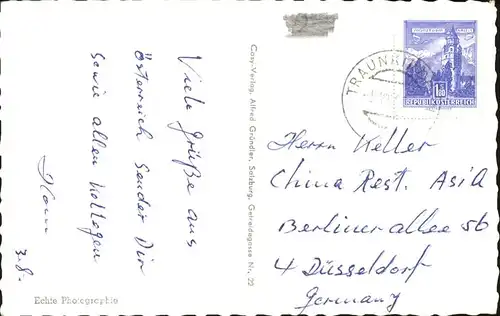 Viele Grüße aus
Österreich sendet Dir
sowie allen Kollegen
3.8.
Echte Photographie
Cosy-Verlag, Alfred Gründler, Salzburg, Getreidegasse Nr. 22
TRAUNK
1.80
REPUBLIK ÖSTERREICH
Herrn Keller
China Rest. Asia
Berliner allee 56
4 Düsseldorf
Germany